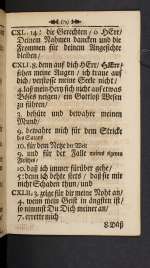 CXL. 14: die Gerechten / o HErr/
Deinem Nahmen dancken und die
Frommen für deinem Angesichte
bleiben/
CXLI. 8. denn auf dich HErr/ HErr/
sehen meine Augen / ich traue auf
dich/ verstosse meine Seele nicht /
4. laß mein Hertz sich nicht auf etwas
Böses neigen/ ein Gottloß Wesen
zu führen/
3. behüte und bewahre meinen
Mund/
9. bewahre mich für dem Stricke
des Satans
10. für dem Netze der Welt
9. und für der Falle meines eigenen
Fleisches/
10. daß ich immer fürüber gehe/
7. daß ich hette fürs / daß sie mir
nicht Schaden thun/ und
CXLII. 3. zeige für dir meine Noht an/
4. wenn mein Geist in ängsten ist/
so nimmst Du Dich meiner an/
7. errette mich
8. Daß